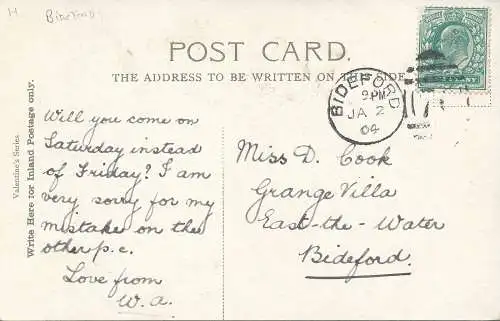 H
Bideford
POST CARD.
THE ADDRESS TO BE WRITTEN ON THIS SIDE
BIDEFORD
9 PM
JA 2
04
Valentine's Series
Write Here for Inland Postage only.
Will you come on
Saturday instead
of Friday? I am
very sorry for my
mistake on the
other p.c.
Love from
W. a.
Miss D. Cook
Grange Villa
East-the-Water
Bideford.